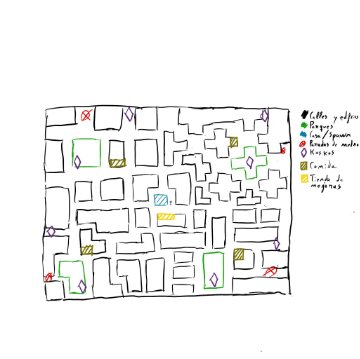 Calles y edificio
Parques
Casa/Spawn
Paradas de metro
Kioskos
Comida
Tienda de
mejoras